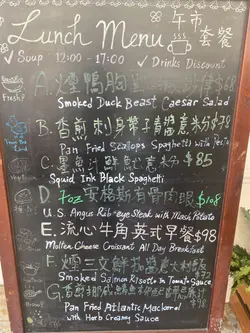 Lunch Menu 午市套餐
✓ Soup 12:00 - 17:00 ✓ Drinks Discount
Fresh!
A. 煙鴨胸 $68
Smoked Duck Beast Caesar Salad
B. 香煎刺身帶子青醬意粉
Pan Fried Scallops Spaghetti with Pesto
C. 墨魚汁鮮 意粉 $85
Squid Ink Black Spaghetti
D 7oz 安格斯有骨肉眼 $108
U.S. Angus Rib-eye Steak with Mash Potato
E. 流心牛角英式早餐 $98
Molten Cheese Croissant All Day Breakfast
F. 煙三文魚 醬意大利
Smoked Salmon Risotto in Tomato Sauce
G. 香煎 $98
Pan Fried Atlantic Mackerel
with Herb Creamy Sauce